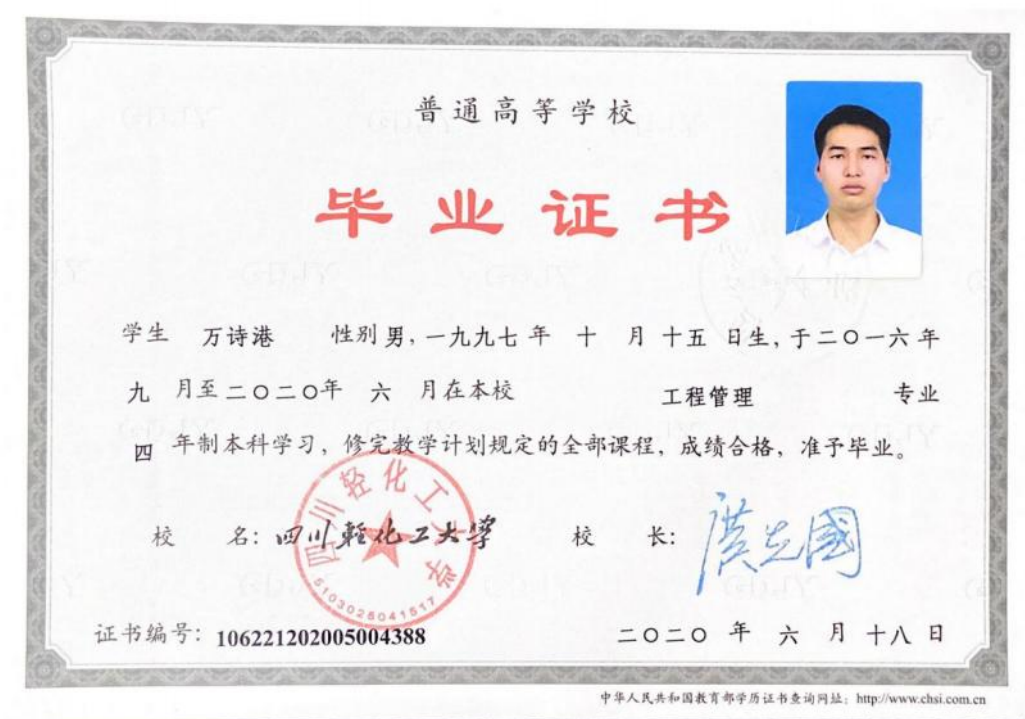 普通高等学校
毕业证书
学生 万诗港 性别 男, 一九九七 年 十 月 十五 日生, 于二〇一六 年
九 月至二〇二〇年 六 月在本校 工程管理 专业
四 年制本科学习, 修完教学计划规定的全部课程, 成绩合格, 准予毕业。
校 名: 四川輕化工大學 校 长:
四川轻化工大学
5103026041517
证书编号: 106221202005004388 二〇二〇 年 六 月 十八 日
中华人民共和国教育部学历证书查询网址: http://www.chsi.com.cn